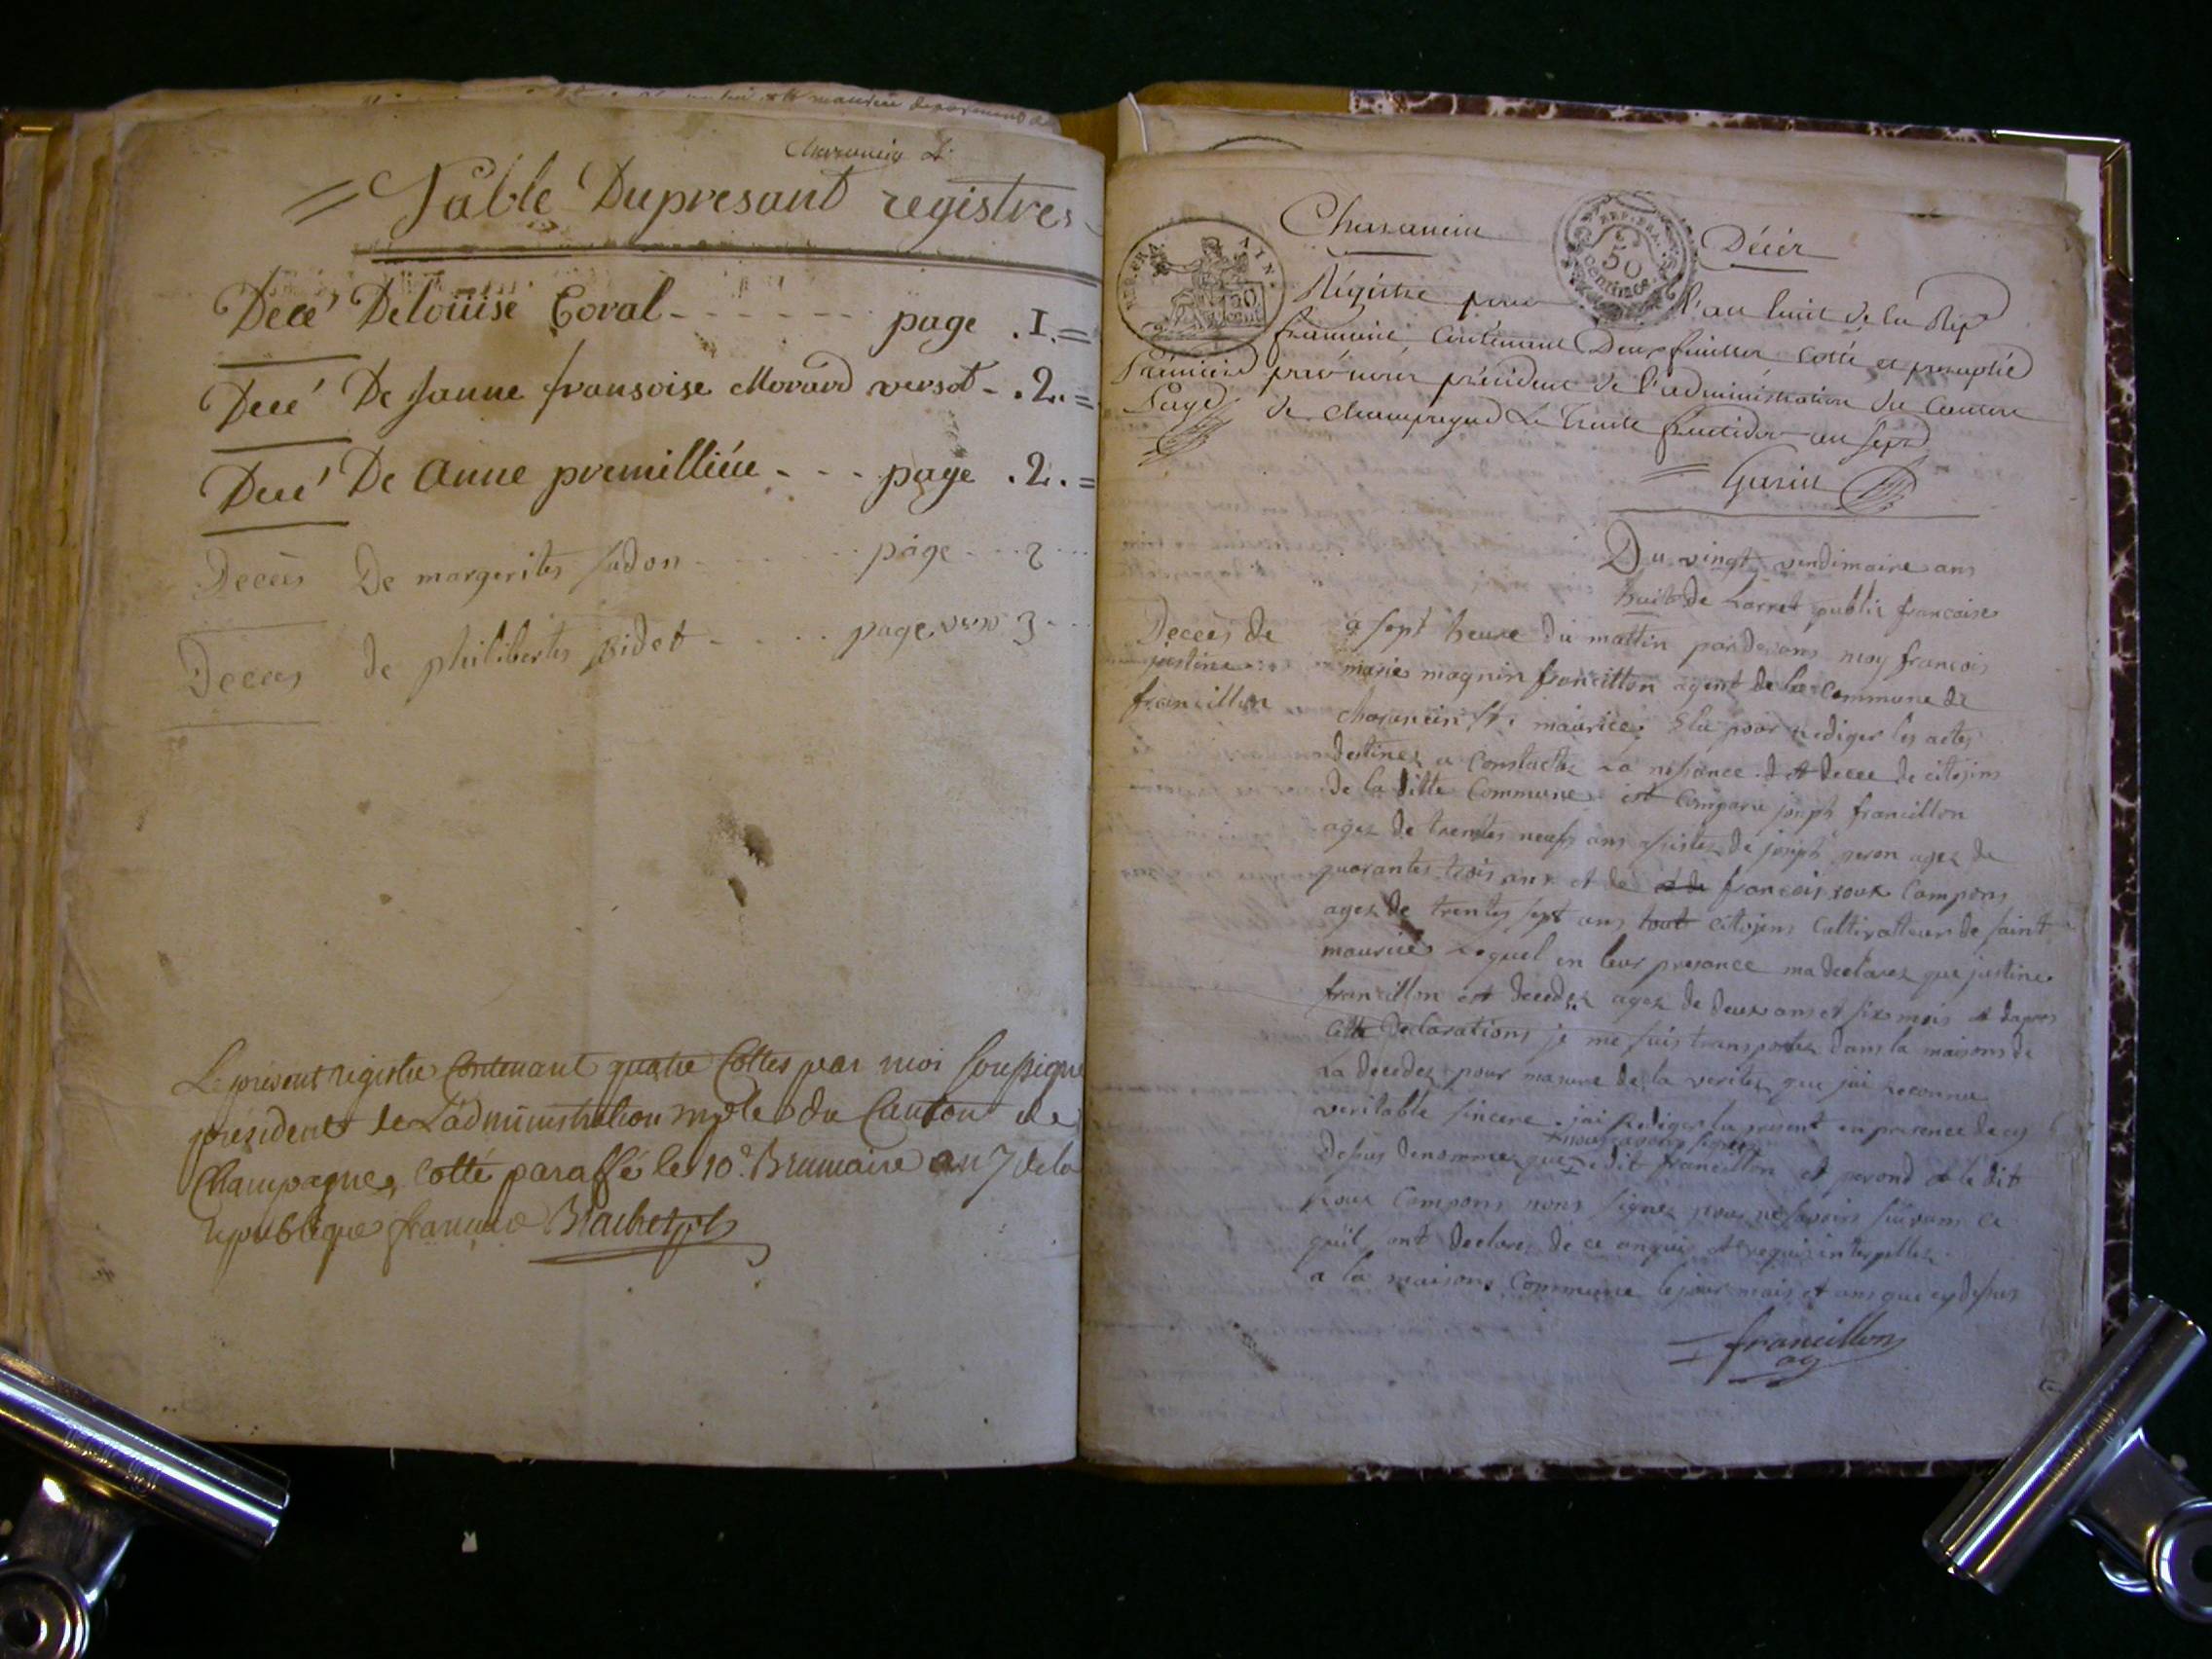 = Table Dupresant registres
Decé Deloüise Coral - - - - - - - page .1.=
Decé De Janne fransoise Morard versot - .2.=
Decé De Anne premilliéu - - - page .2.=
Decées De margerites Judon - - - - - - page - - - 2 - - -
Decees de philibertes pidet - - - - - page verso 3 - - -
Le présent registre Contenant quatre Cottes par moi soussigné
président de L'administration mple du Canton de
Champagne, Cotté paraffé le 10e. Brumaire an 7 de la
republique francaise Brachet pt
REP. FRA. AIN.
REP. FRA. 50 centimes
Charancin Décès
Régistre pour l'an huit de la Rép
francaise, Contenant Deux feuilles Cotté et paraphé
Prémiere par nous président de l'administration du Canton
Page de Champagne Le trente fructidor an sept
Garin
Du vingt vendimaire ans
huit de Larret public francaise
Decees de
justine
francillon
a sept heure du mattin pardevans moy francois
marie magnin francillon agent de la Commune de
charancin St. maurice, Elu pour rediger les actes
destinez a Constactez La nessance et decee de citojins
de la ditte Commune est Comparu joseph francillon
agez de trentes neufs ans assistez de joseph peron agez de
quarantes trois ans et de et de francois roux Compons
agez de trentes sept ans tout citojens Cultivatteur de saint
maurice Lequel en leur presance ma declarez que justine
francillon est decedez agez de deux ans et six mois et dapres
Cette declarations je me suis transportez dans la maisons de
La decedez pour masure de la veritez que jai reconnu
veritable sincere. jai Rediger lu present en presence de cy
nous avons signez
desus denommez que Ledit francillon et perond et le dit
Roux Compons nons signez pour ne savoir suivans ce
quil ont declarez de ce anquis et requis interpellez
a la maisons Commune le jour mois et ans que cy desus
francillon
ag